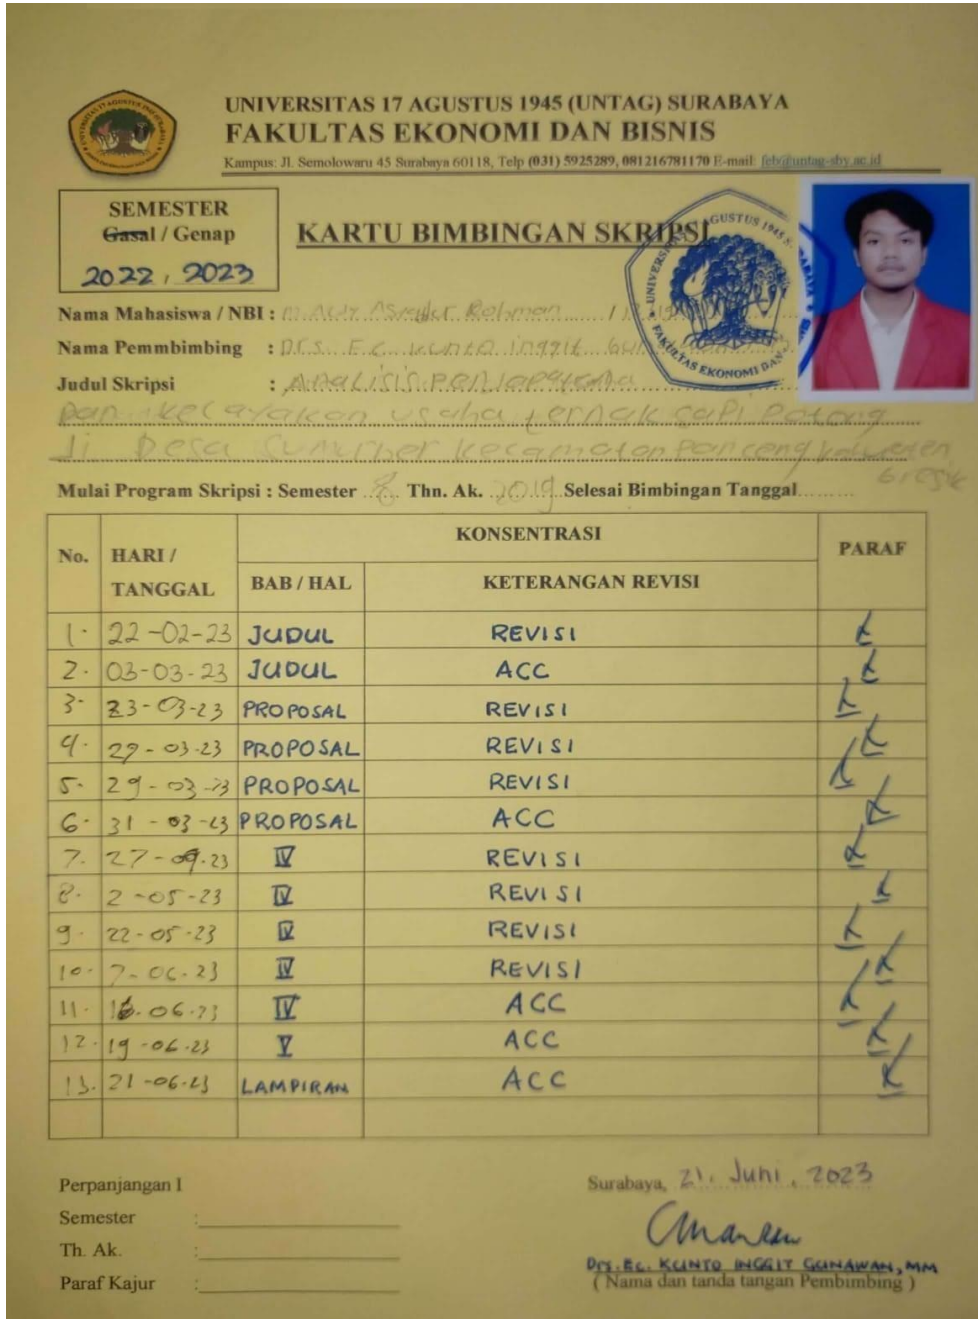 UNIVERSITAS 17 AGUSTUS 1945 (UNTAG) SURABAYA
FAKULTAS EKONOMI DAN BISNIS
Kampus: Jl. Semolowaru 45 Surabaya 60118, Telp (031) 5925289, 081216781170 E-mail: feb@untag-sby.ac.id
SEMESTER
Gasal / Genap
2022, 2023
KARTU BIMBINGAN SKRIPSI
Nama Mahasiswa / NBI : M. Rahman /
Nama Pemmbimbing : Drs. Ec. Kunto inggit
Judul Skripsi : Analisis
Dan kelayakan usaha ternak sapi potong
di Desa Kecamatan Panceng
Gresik
Mulai Program Skripsi : Semester 8 Thn. Ak. 2019 Selesai Bimbingan Tanggal
No. HARI / TANGGAL KONSENTRASI PARAF
BAB / HAL KETERANGAN REVISI
1. 22-02-23 JUDUL REVISI
2. 03-03-23 JUDUL ACC
3. 23-03-23 PROPOSAL REVISI
4. 29-03-23 PROPOSAL REVISI
5. 29-03-23 PROPOSAL REVISI
6. 31-03-23 PROPOSAL ACC
7. 27-09-23 IV REVISI
8. 2-05-23 IV REVISI
9. 22-05-23 IV REVISI
10. 7-06-23 IV REVISI
11. 06-23 IV ACC
12. 19-06-23 V ACC
13. 21-06-23 LAMPIRAN ACC
Perpanjangan I
Semester :
Th. Ak. :
Paraf Kajur :
Surabaya, 21. Juni, 2023
Drs. Ec. KUNTO INGGIT GUNAWAN, MM
( Nama dan tanda tangan Pembimbing )